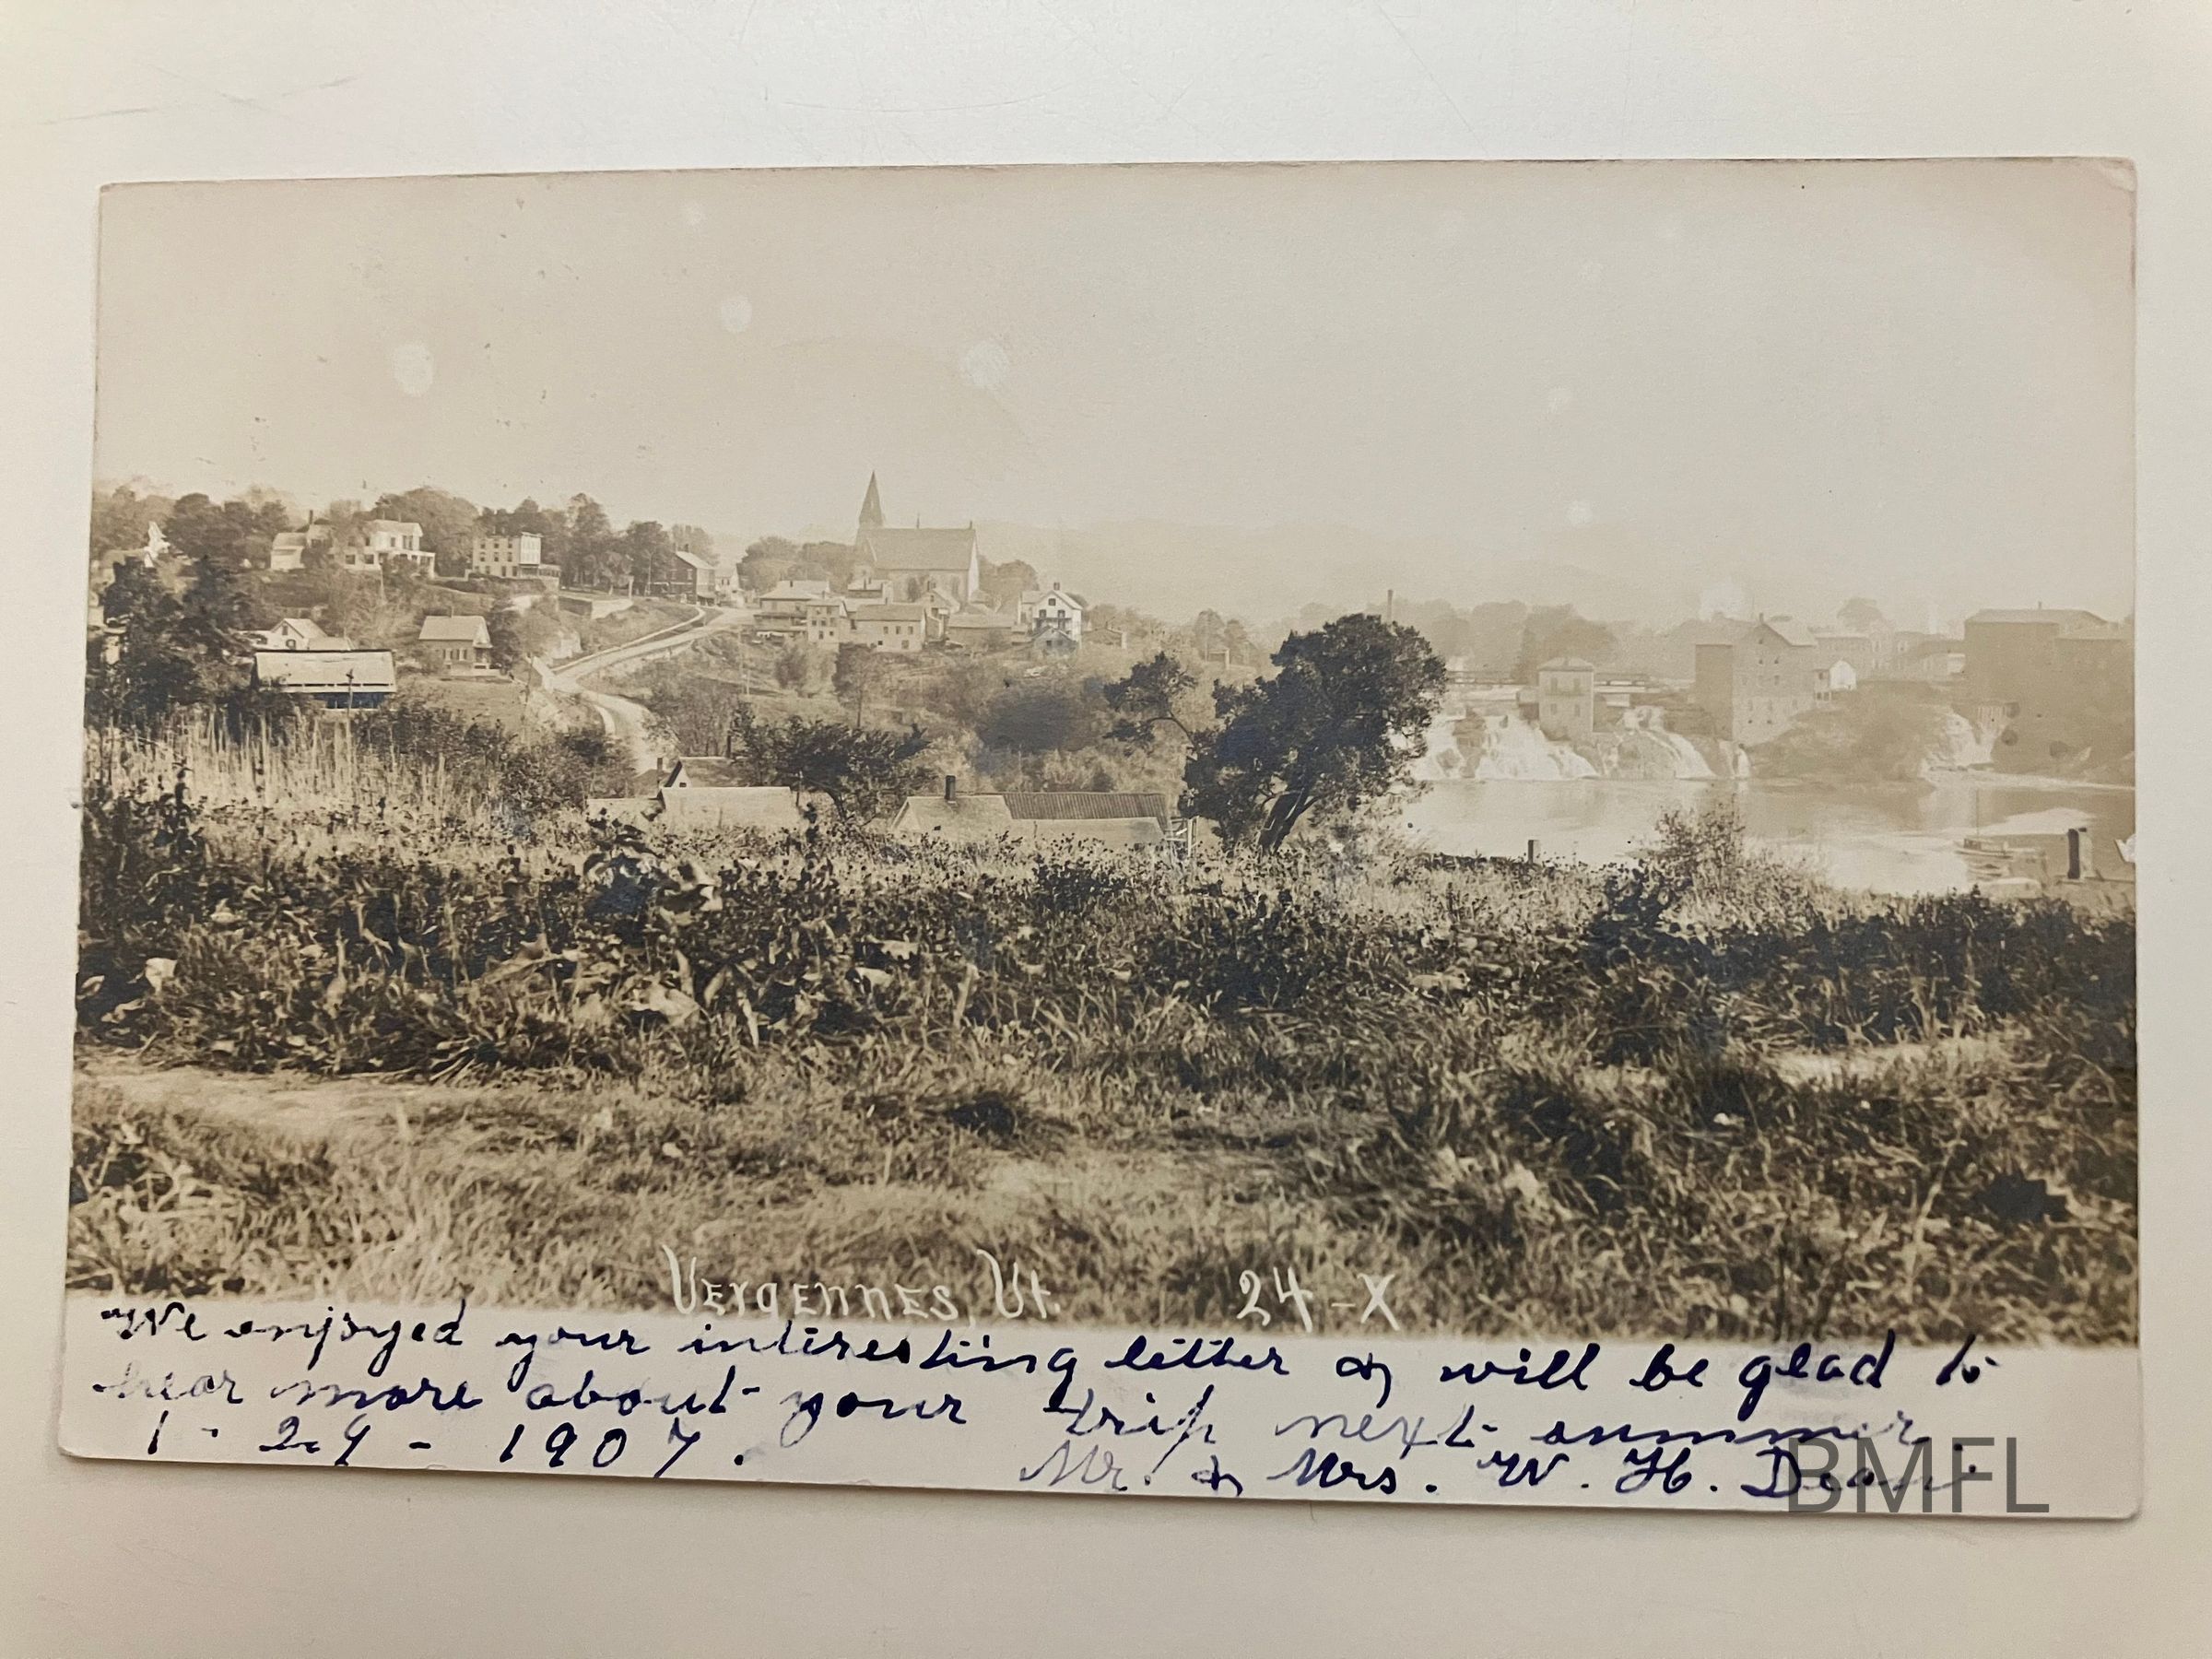 Vergennes, Vt. 24-X
We enjoyed your interesting letter & will be glad to
hear more about your trip next summer.
1-29-1907.
Mr. & Mrs. W. H. Dean
BMFL